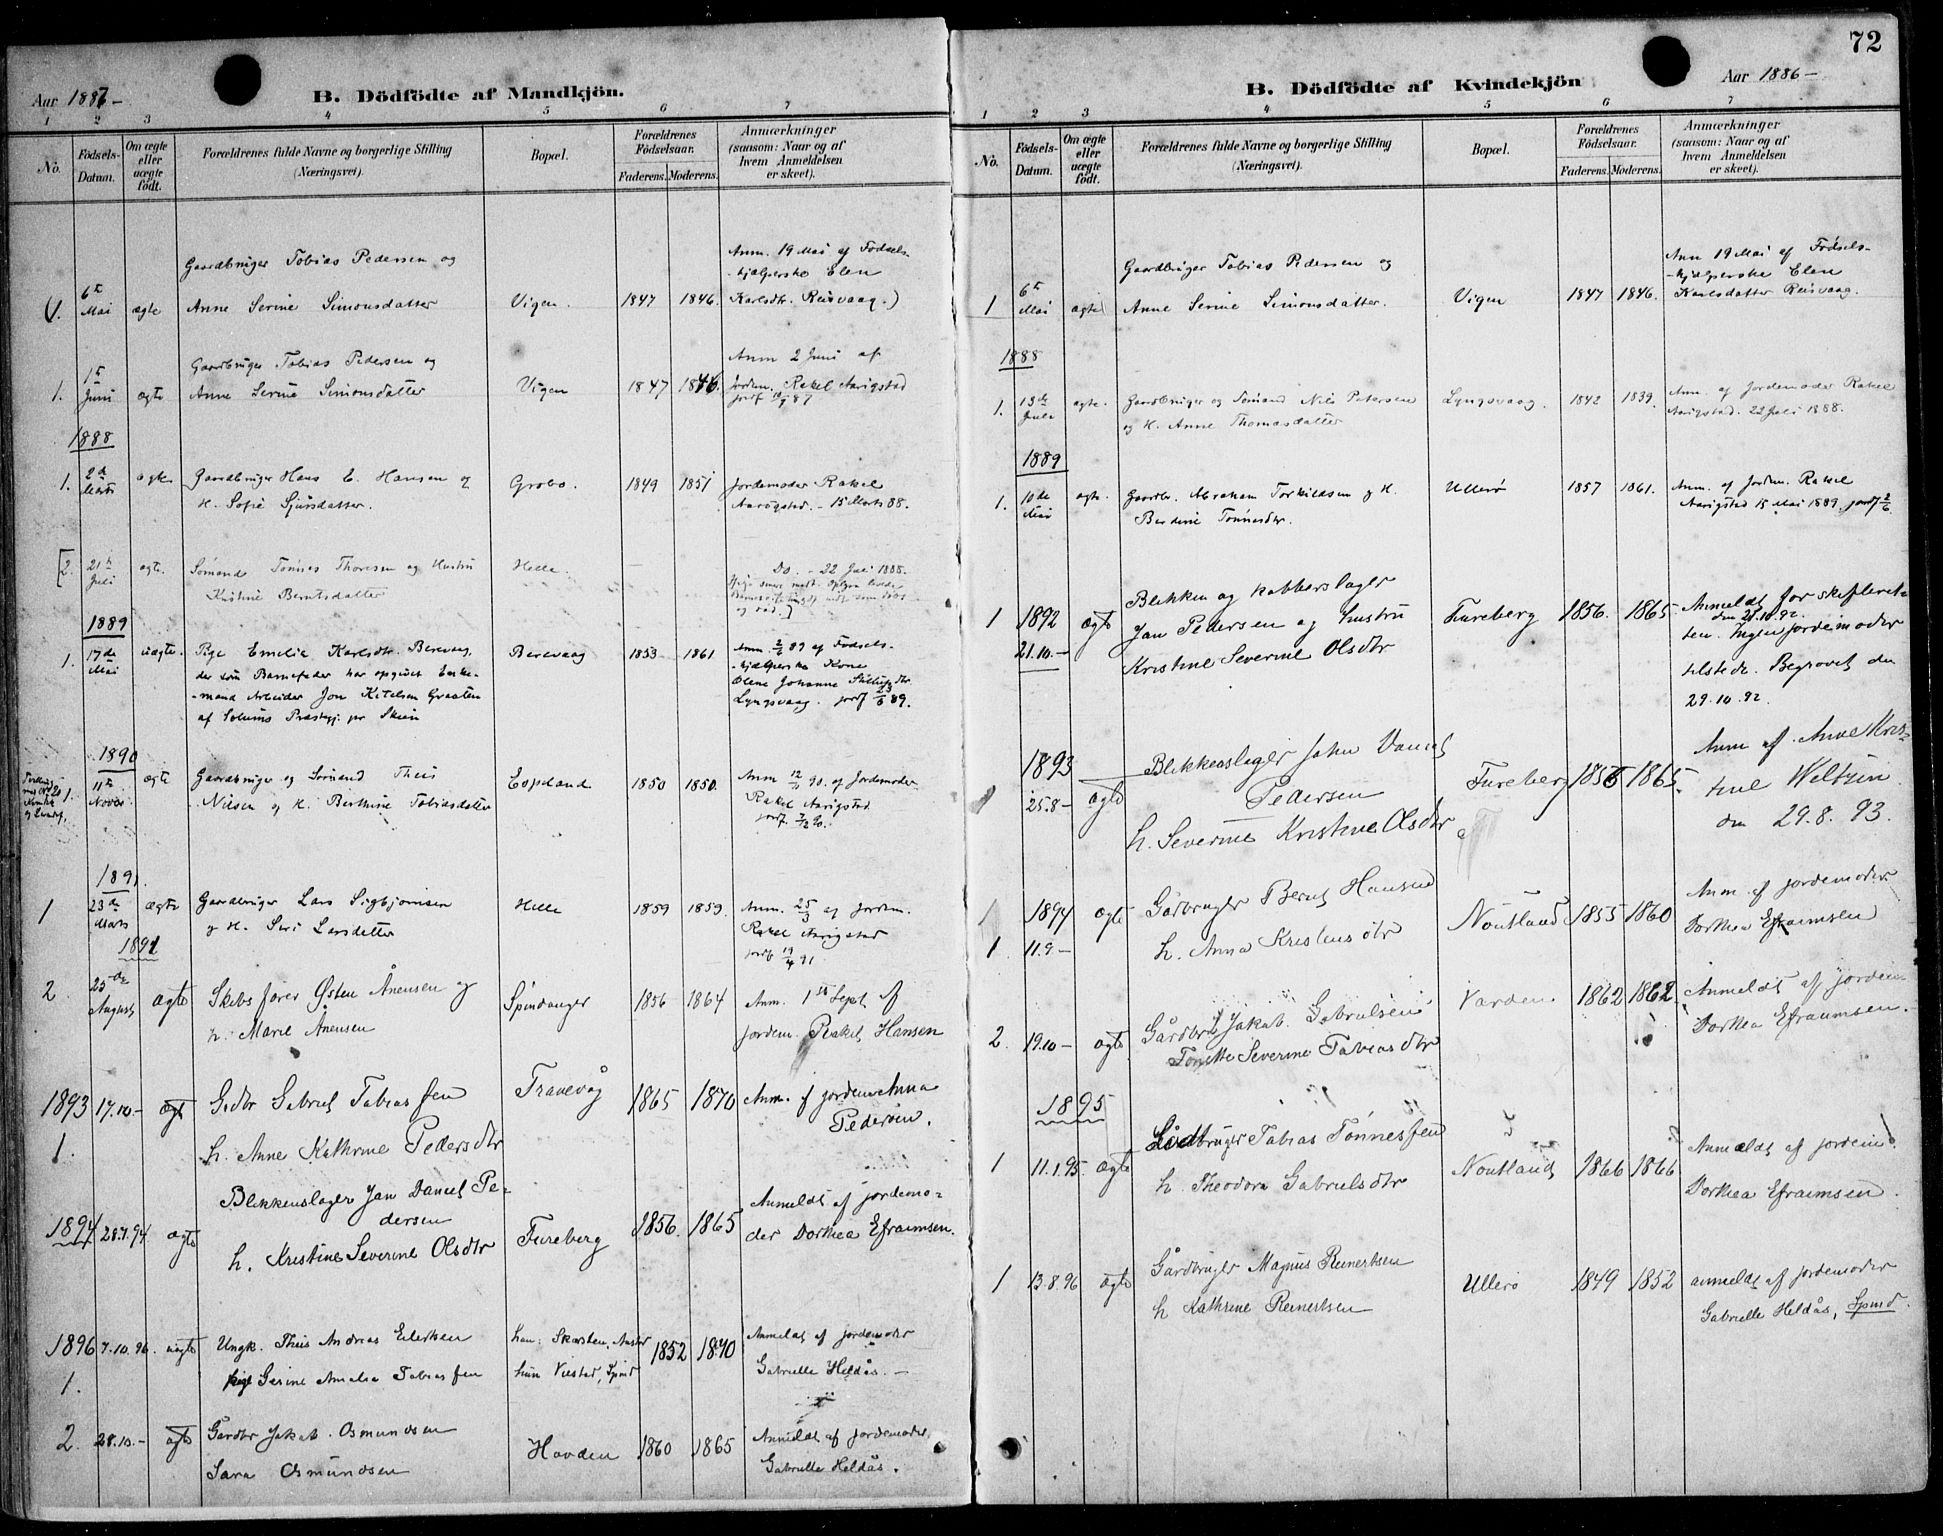 72
Aar 1887-
B. Dödfödte af Mandkjön.
1 2 3 4 5 6 7
No.
Födsels-Datum.
Om ægte eller uægte födt.
Forældrenes fulde Navne og borgerlige Stilling (Næringsvei).
Bopæl.
Forældrenes Födselsaar.
Faderens. Moderens.
Anmærkninger (saasom: Naar og af hvem Anmeldelsen er skeet).
Gaardbruger Tobias Pedersen og
Anm. 19 Mai af Fødsels-
-hjælperske Elen
(1. 6te Mai ægte Anne Serine Simonsdatter Vigen. 1847 1846. Karlsdtr. Reisvaag.)
Gaardbruger Tobias Pedersen og
Anm 2 Juni af
1. 1te Juni ægte Anne Serine Simonsdatter Vigen 1847 1846. Jordem. Rakel Aarigstad
1888
1. 2de Marts ægte Gaardbruger Hans E. Hansen og Grobo. 1849 1851 Jordemoder Rakel
H. Sofie Sjursdatter. Aarigstad. - 15 Marts 88.
[2. 21de Juli ægte. Sømand Tønnes Thoresen og Hustru Helle. Do. - 22 Juli 1888.
Kristine Berntsdatter
og død.]
1889
1. 17de Mai uægte. Pige Emelie Karlsdtr. Berevaag, Berevaag 1853 1861 Anm. 2/6 89 af Fødsels-
der som Barnefader har opgivet Enke- -hjælperske Kone
-mand Arbeider Jon Kitelsen Graaten Olene Johanne
af Solums Præstegj. pr Skien Lyngsvaag. jordf 23/6 89.
1890
1. 11te Novbr ægte Gaardbruger og Sømand Theis Eopsland 1850 1850. Anm 12/11 90. af Jordemoder
Nilsen og H. Berthine Tobiasdatter Rakel Aarigstad.
1891.
1 23de Marts ægte Gaardbruger Lars Sigbjørnsen Helle 1859 1859. Anm. 25/3 af Jordem.
og H. Siri Larsdatter Rakel Aarigstad
jordf 19/4 91
1891
2 25de August ægte Skibsfører Østen Ånensen og Spindanger 1856 1864 Anm. 1ste Sept. af
h. Marie Ånensen jordem. Rakel Hansen
1893 17.10- ægt Grdbr Gabriel Tobiassen Tranevåg 1865 1870 Anm. af jordem Anna
1. h. Anne Kathrine Pedersdtr Pedersen.
Blikkenslager Jan Daniel Pe-
dersen
Anmeldt af jordemo-
1894 28.7.94 ægte h. Kristine Severine Olsdtr Fureberg 1856. 1865 der Dorthea Efraimsen.
1896 7.10.96. uægte Ungk. Theis Andreas Eilertsen han: Skarsten, Auster 1852 1870 Anmeldt af jordemoder
1. pige Gesine Amalia Tobiassen hun Viestad, Spind Gabrielle Heldås. -
2. 28.10.- ægte Gårdbr Jakob Osmundsen Hovden 1860 1865 Anmeldt af jordemoder
Sara Osmundsen Gabrielle Heldås.
B. Dödfödte af Kvindekjön
Aar 1886-
1 2 3 4 5 6 7
No.
Födsels-Datum.
Om ægte eller uægte födt.
Forældrenes fulde Navne og borgerlige Stilling (Næringsvei).
Bopæl.
Forældrenes Födselsaar.
Faderens. Moderens.
Anmærkninger (saasom: Naar og af hvem Anmeldelsen er skeet).
Gaardbruger Tobias Pedersen og
Anm 19 Mai af Fødsels-
-hjælperske Elen
1 6te Mai ægte Anne Serine Simonsdatter. Vigen 1847 1846. Karlsdatter Reisvaag.
1888
1. 13de Juli ægte. Gaardbruger og Sømand Nils Petersen Lyngsvaag. 1842 1839. Anm. af Jordemoder Rakel
og H. Anne Thomasdatter Aarigstad. 22 Juli 1888.
1889
1. 10de Mai ægte. Gaardbr. Abraham Torkildsen og H. Ullerø 1857 1861. Anm. af Jordem. Rakel
Berdine Tønnesdtr. Aarigstad 15 Mai 1889. jordf 2/6
Blikken og kobberslager
1 1892 ægte Jan Pedersen og hustru Fureberg 1856. 1865 Anmeldt for skifteret-
ten den 28.10.92. Ingen jordemoder
21.10.- Kristine Severine Olsdtr tilstede. Begravet den
29.10.92.
1893 Blikkenslager John Daniel
Anm af Anne Kris-
1 25.8- ægte Pedersen Fureberg 1856 1865. tine Weltzin
h. Severine Kristine Olsdtr den 29.8.93.
1 1894 ægte Gårdbruger Bernt Hansen Noutland 1855 1860 Anm. af jordemoder
1 11.9- h. Anna Kristensdtr Dorthea Efraimsen
2. 19.10- ægte Gårdbr Jakob Gabrielsen Varden 1862 1862. Anmeldt af jordem
Tonette Severine Tobiasdtr Dorthea Efraimsen.
1895
1 11.1.95. ægte Gårdbruger Tobias Tønnessen Noutland 1866 1866 Anmeldt af jordem.
h. Theodora Gabrielsdtr Dorthea Efraimsen.
1 13.8.96 ægte Gårdbruger Magnus Reinertsen Ullerø 1849 1852 anmeldt af jordemoder
h Kathrine Reinertsen Gabrielle Heldås, Spind.